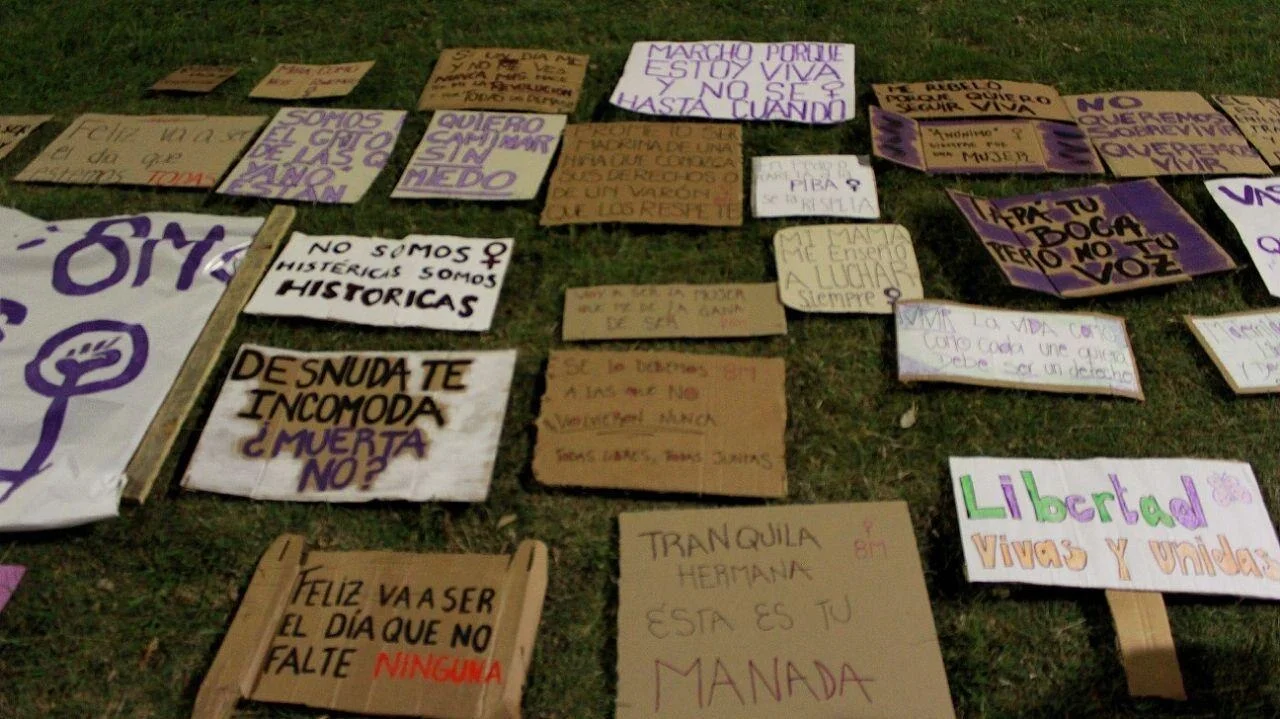 MIRA COMO
SI UN DIA ME
Y NO ME VES
NUNCA MAS HACE
LA REVOLUCION
TODAS LAS DEMAS
MARCHO PORQUE
ESTOY VIVA
Y NO SE
HASTA CUANDO
ME REBELO
PORQUE QUIERO
SEGUIR VIVA
"ANONIMO"
SIEMPRE FUE
UNA MUJER
NO
QUEREMOS
SOBREVIVIR
QUEREMOS
VIVIR
Feliz va a ser
el dia que
estemos TODAS
SOMOS
EL GRITO
DE LAS Q
YA NO
ESTÁN
QUIERO
CAMINAR
SIN
MIEDO
PROMETO SER
MADRINA DE UNA
NIÑA QUE CONOZCA
SUS DERECHOS O
DE UN VARÓN
QUE LOS RESPETE
PIBA
se la RESPETA
TAPÁ TU
BOCA
PERO NO TU
VOZ
8M
NO SOMOS
HISTÉRICAS SOMOS
HISTORICAS
MI MAMÁ
ME ENSEÑÓ
A LUCHAR
siempre
VOY A SER LA MUJER
QUE ME DE LA GANA
DE SER
VIVIR LA VIDA COMO
COMO cada une quiera
Debe ser un derecho
DESNUDA TE
INCOMODA
¿MUERTA
NO?
SE LO DEBEMOS 8M
A LAS QUE NO
VOLVIERON NUNCA
TODAS LIBRES, TODAS JUNTAS
Libertad
Vivas y unidas
FELIZ VA A SER
EL DÍA QUE NO
FALTE NINGUNA
TRANQUILA
8M
HERMANA
ÉSTA ES TU
MANADA